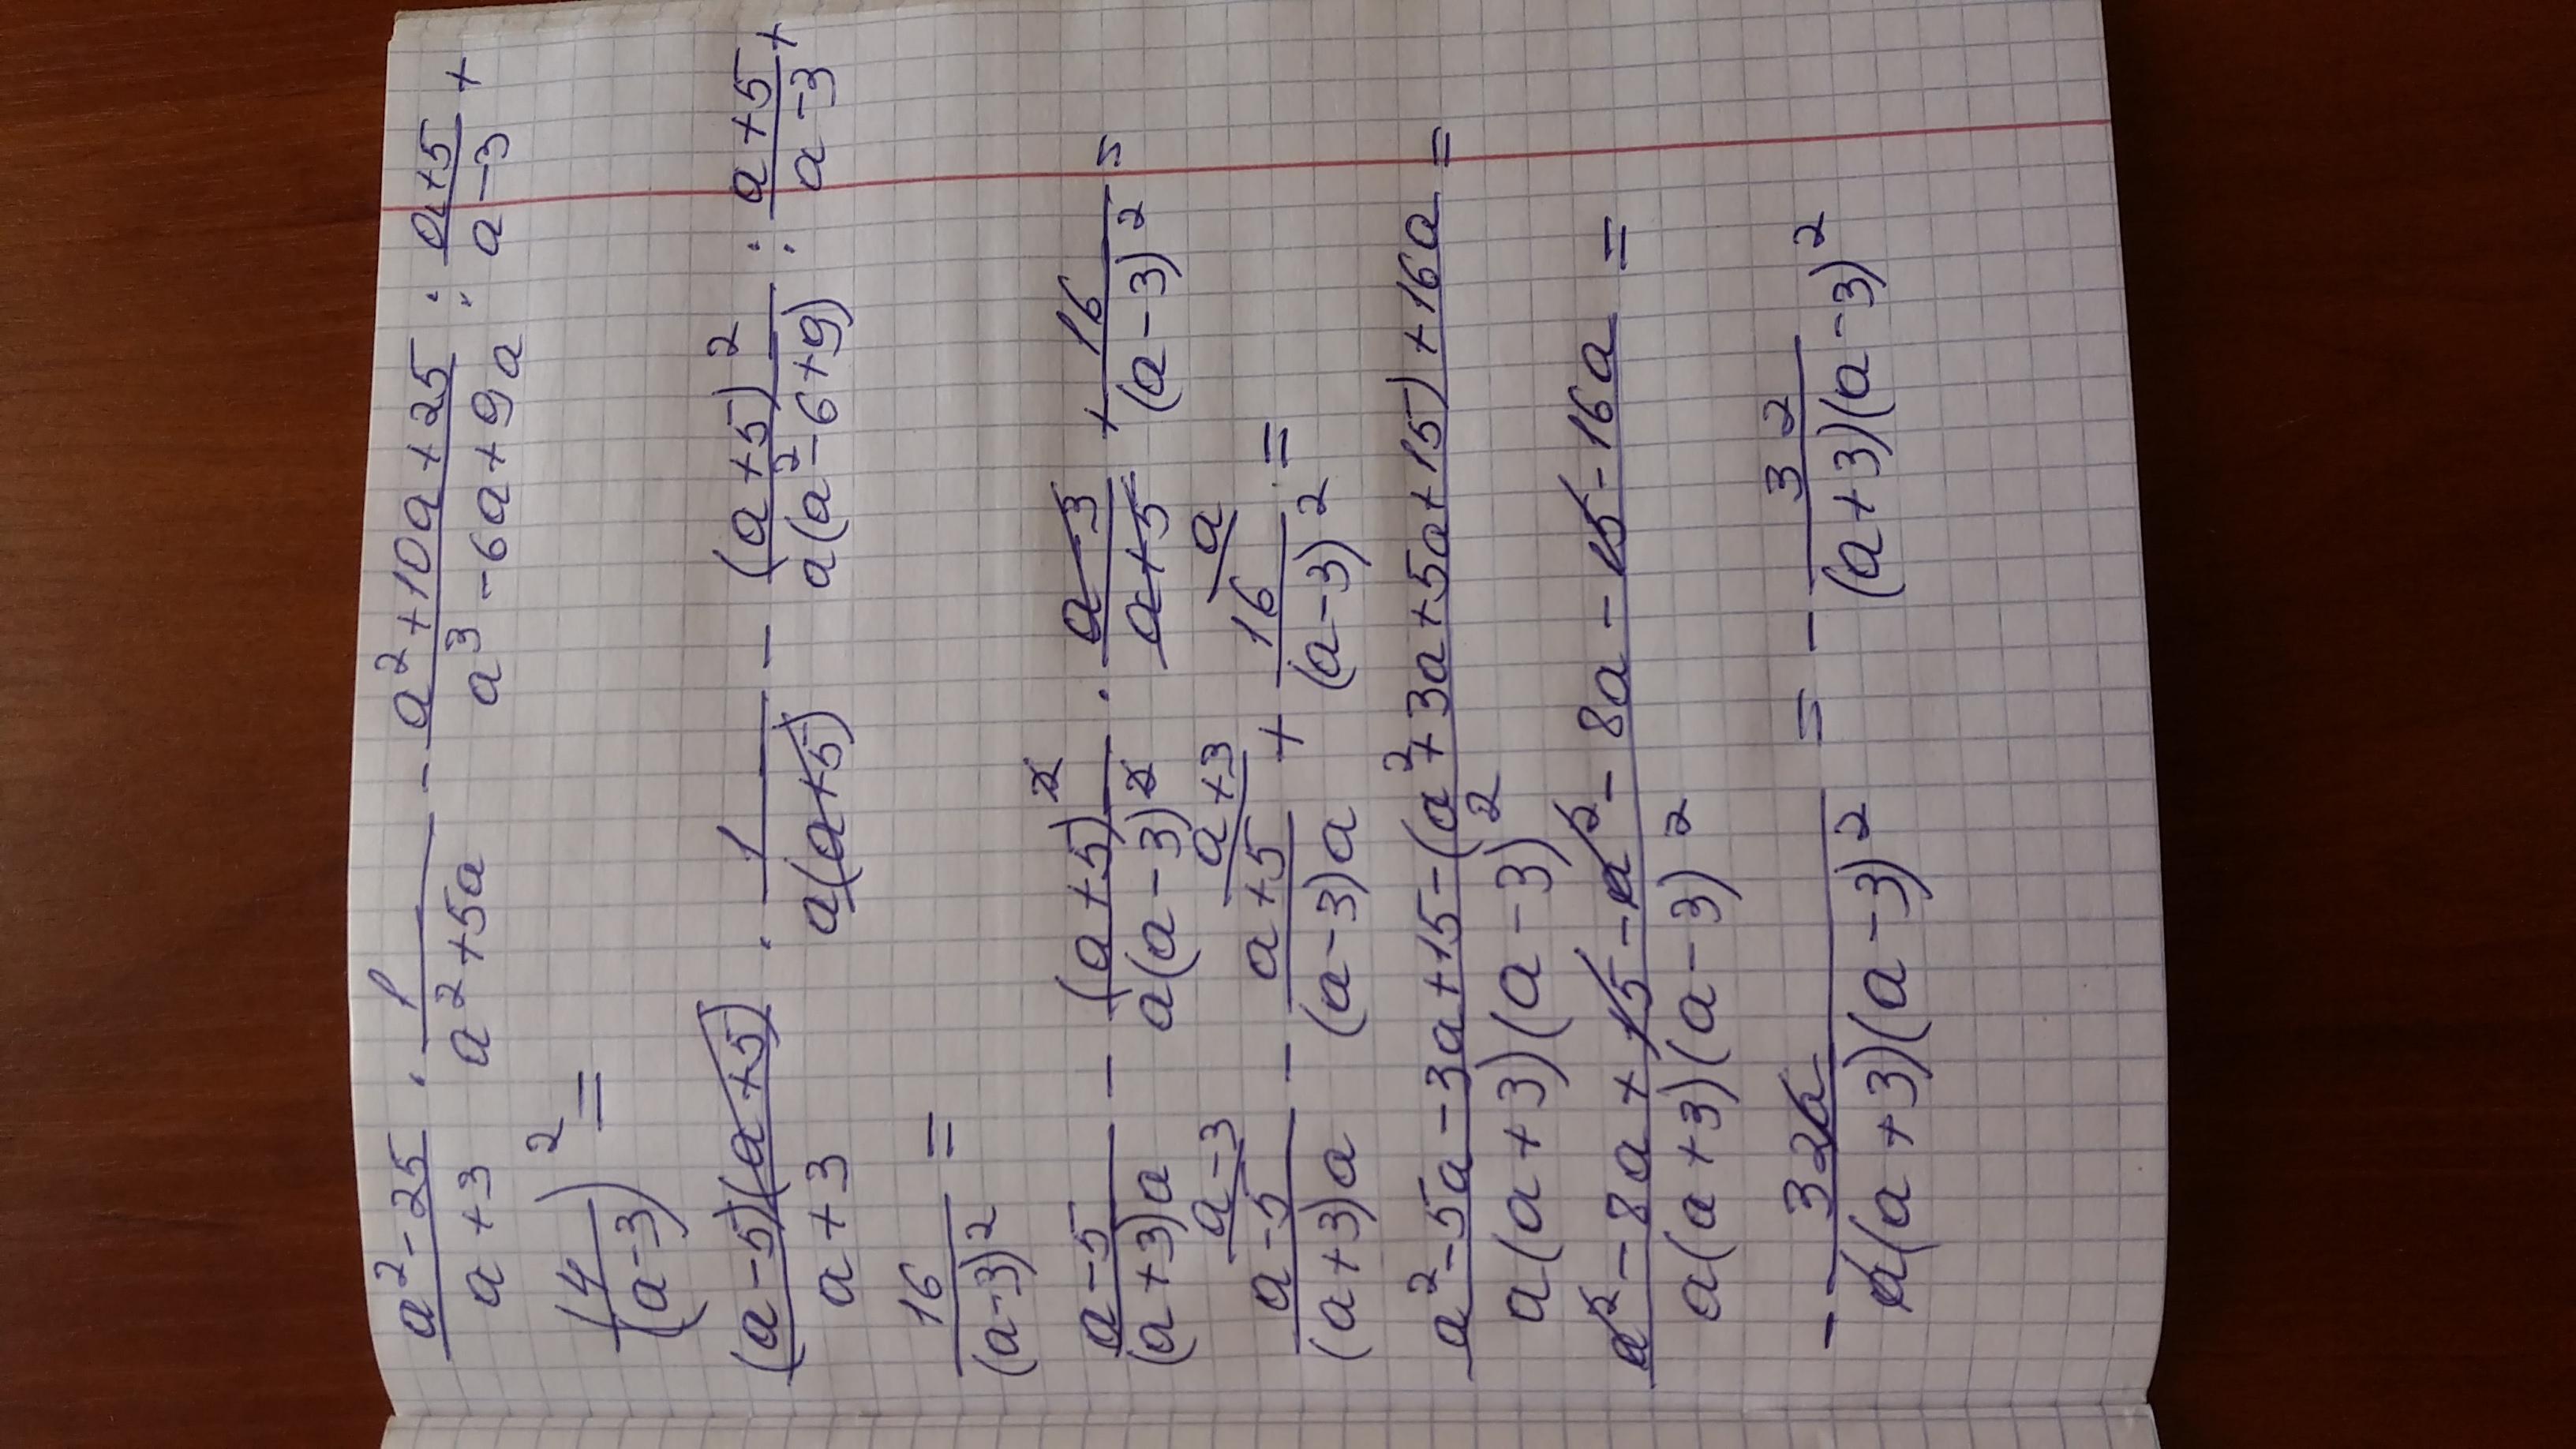 (a² - 25)/(a + 3) · 1/(a² + 5a) - (a² + 10a + 25)/(a³ - 6a + 9a) : (a + 5)/(a - 3) +
(4/(a - 3))² =
((a - 5)(a + 5))/(a + 3) · 1/(a(a + 5)) - (a + 5)²/(a(a² - 6 + 9)) : (a + 5)/(a - 3) +
16/(a - 3)² =
(a - 5)/((a + 3)a) - (a + 5)²/(a(a - 3)²) · (a - 3)/(a + 5) + 16/(a - 3)² =
a - 3 a + 3 a
(a - 5)/((a + 3)a) - (a + 5)/((a - 3)a) + 16/(a - 3)² =
(a² - 5a - 3a + 15 - (a² + 3a + 5a + 15) + 16a)/(a(a + 3)(a - 3)²) =
(a² - 8a + 15 - a² - 8a - 15 - 16a)/(a(a + 3)(a - 3)²) =
- 32a/(a(a + 3)(a - 3)²) = - 32/((a + 3)(a - 3)²)